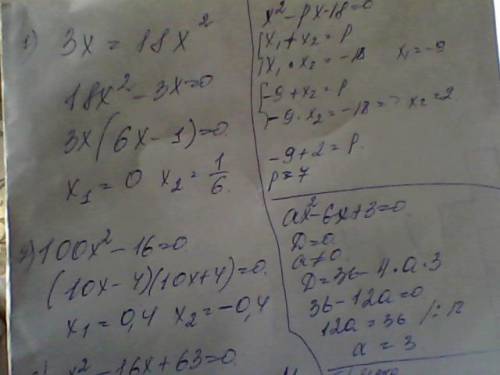 1) 3x = 18x²
18x² - 3x = 0
3x(6x - 1) = 0
x₁ = 0 x₂ = 1/6.
2) 100x² - 16 = 0
(10x - 4)(10x + 4) = 0
x₁ = 0,4 x₂ = -0,4
x² - 16x + 63 = 0
x² - px - 18 = 0
{x₁ + x₂ = p
{x₁ • x₂ = -18 x₁ = -9
{-9 + x₂ = p
{-9 • x₂ = -18 => x₂ = 2
-9 + 2 = p
p = 7
ax² - 6x + 3 = 0
D = 0
a ≠ 0
D = 36 - 4 • a • 3
36 - 12a = 0
12a = 36 /: 12
a = 3